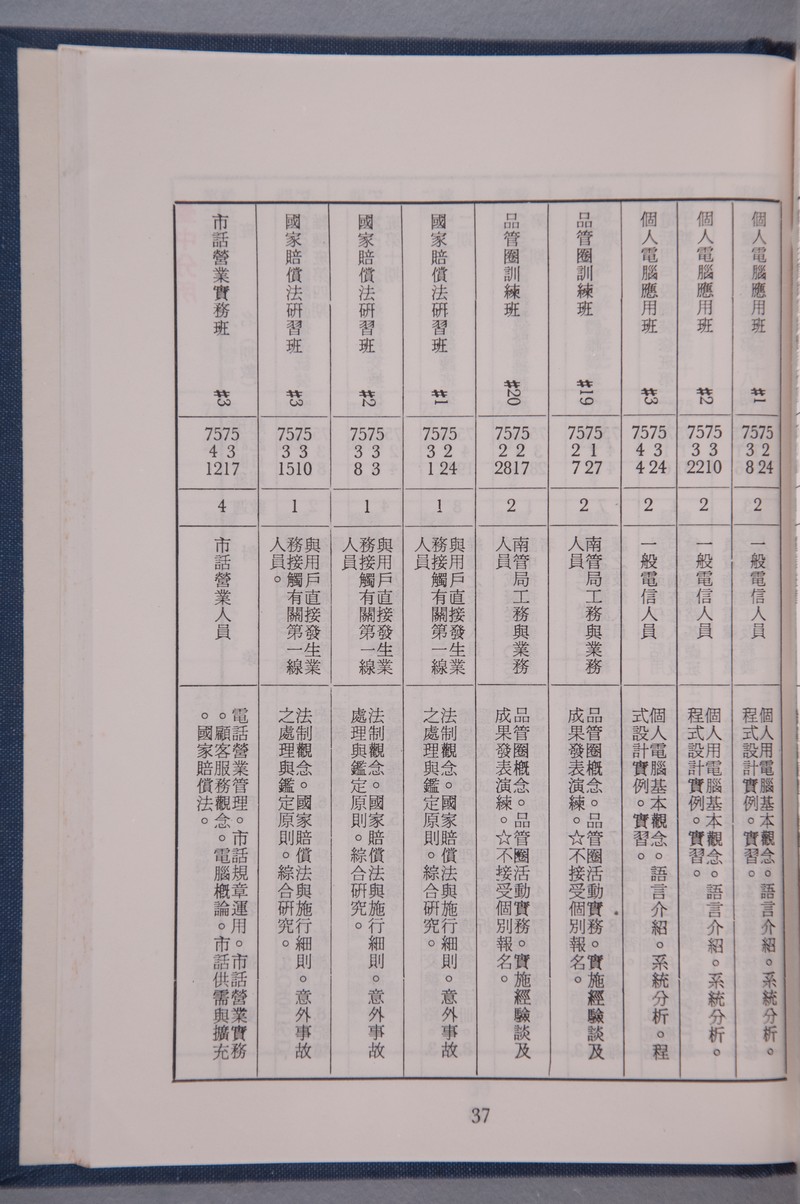 個人電腦應用班 #1
7575
3 2
8 24
2
一般電信人員
個人用電腦基本觀念。語言介紹。系統分析。
程式設計實例。實習。
個人電腦應用班 #2
7575
3 3
2210
2
一般電信人員
個人用電腦基本觀念。語言介紹。系統分析。
程式設計實例。實習。
個人電腦應用班 #3
7575
4 3
4 24
2
一般電信人員
個人電腦基本觀念。語言介紹。系統分析。程
式設計實例。實習。
品管圈訓練班 #19
7575
2 1
7 27
2
南管局工務與業務
人員
品管圈概念。品管圈活動實務。實施經驗談及
成果發表演練。☆不接受個別報名。
品管圈訓練班 #20
7575
2 2
2817
2
南管局工務與業務
人員
品管圈概念。品管圈活動實務。實施經驗談及
成果發表演練。☆不接受個別報名。
國家賠償法研習班 #1
7575
3 2
1 24
1
與用戶直接發生業
務接觸有關第一線
人員
法制觀念。國家賠償法與施行細則。意外事故
之處理與鑑定原則。綜合研究。
國家賠償法研習班 #2
7575
3 3
8 3
1
與用戶直接發生業
務接觸有關第一線
人員
法制觀念。國家賠償法與施行細則。意外事故
處理與鑑定原則。綜合研究。
國家賠償法研習班 #3
7575
3 3
1510
1
與用戶直接發生業
務接觸有關第一線
人員。
法制觀念。國家賠償法與施行細則。意外事故
之處理與鑑定原則。綜合研究。
市話營業實務班 #3
7575
4 3
1217
4
市話營業人員
電話營業管理。市話規章運用。市話營業實務
。顧客服務觀念。電腦概論。市話供需與擴充
。國家賠償法。
37